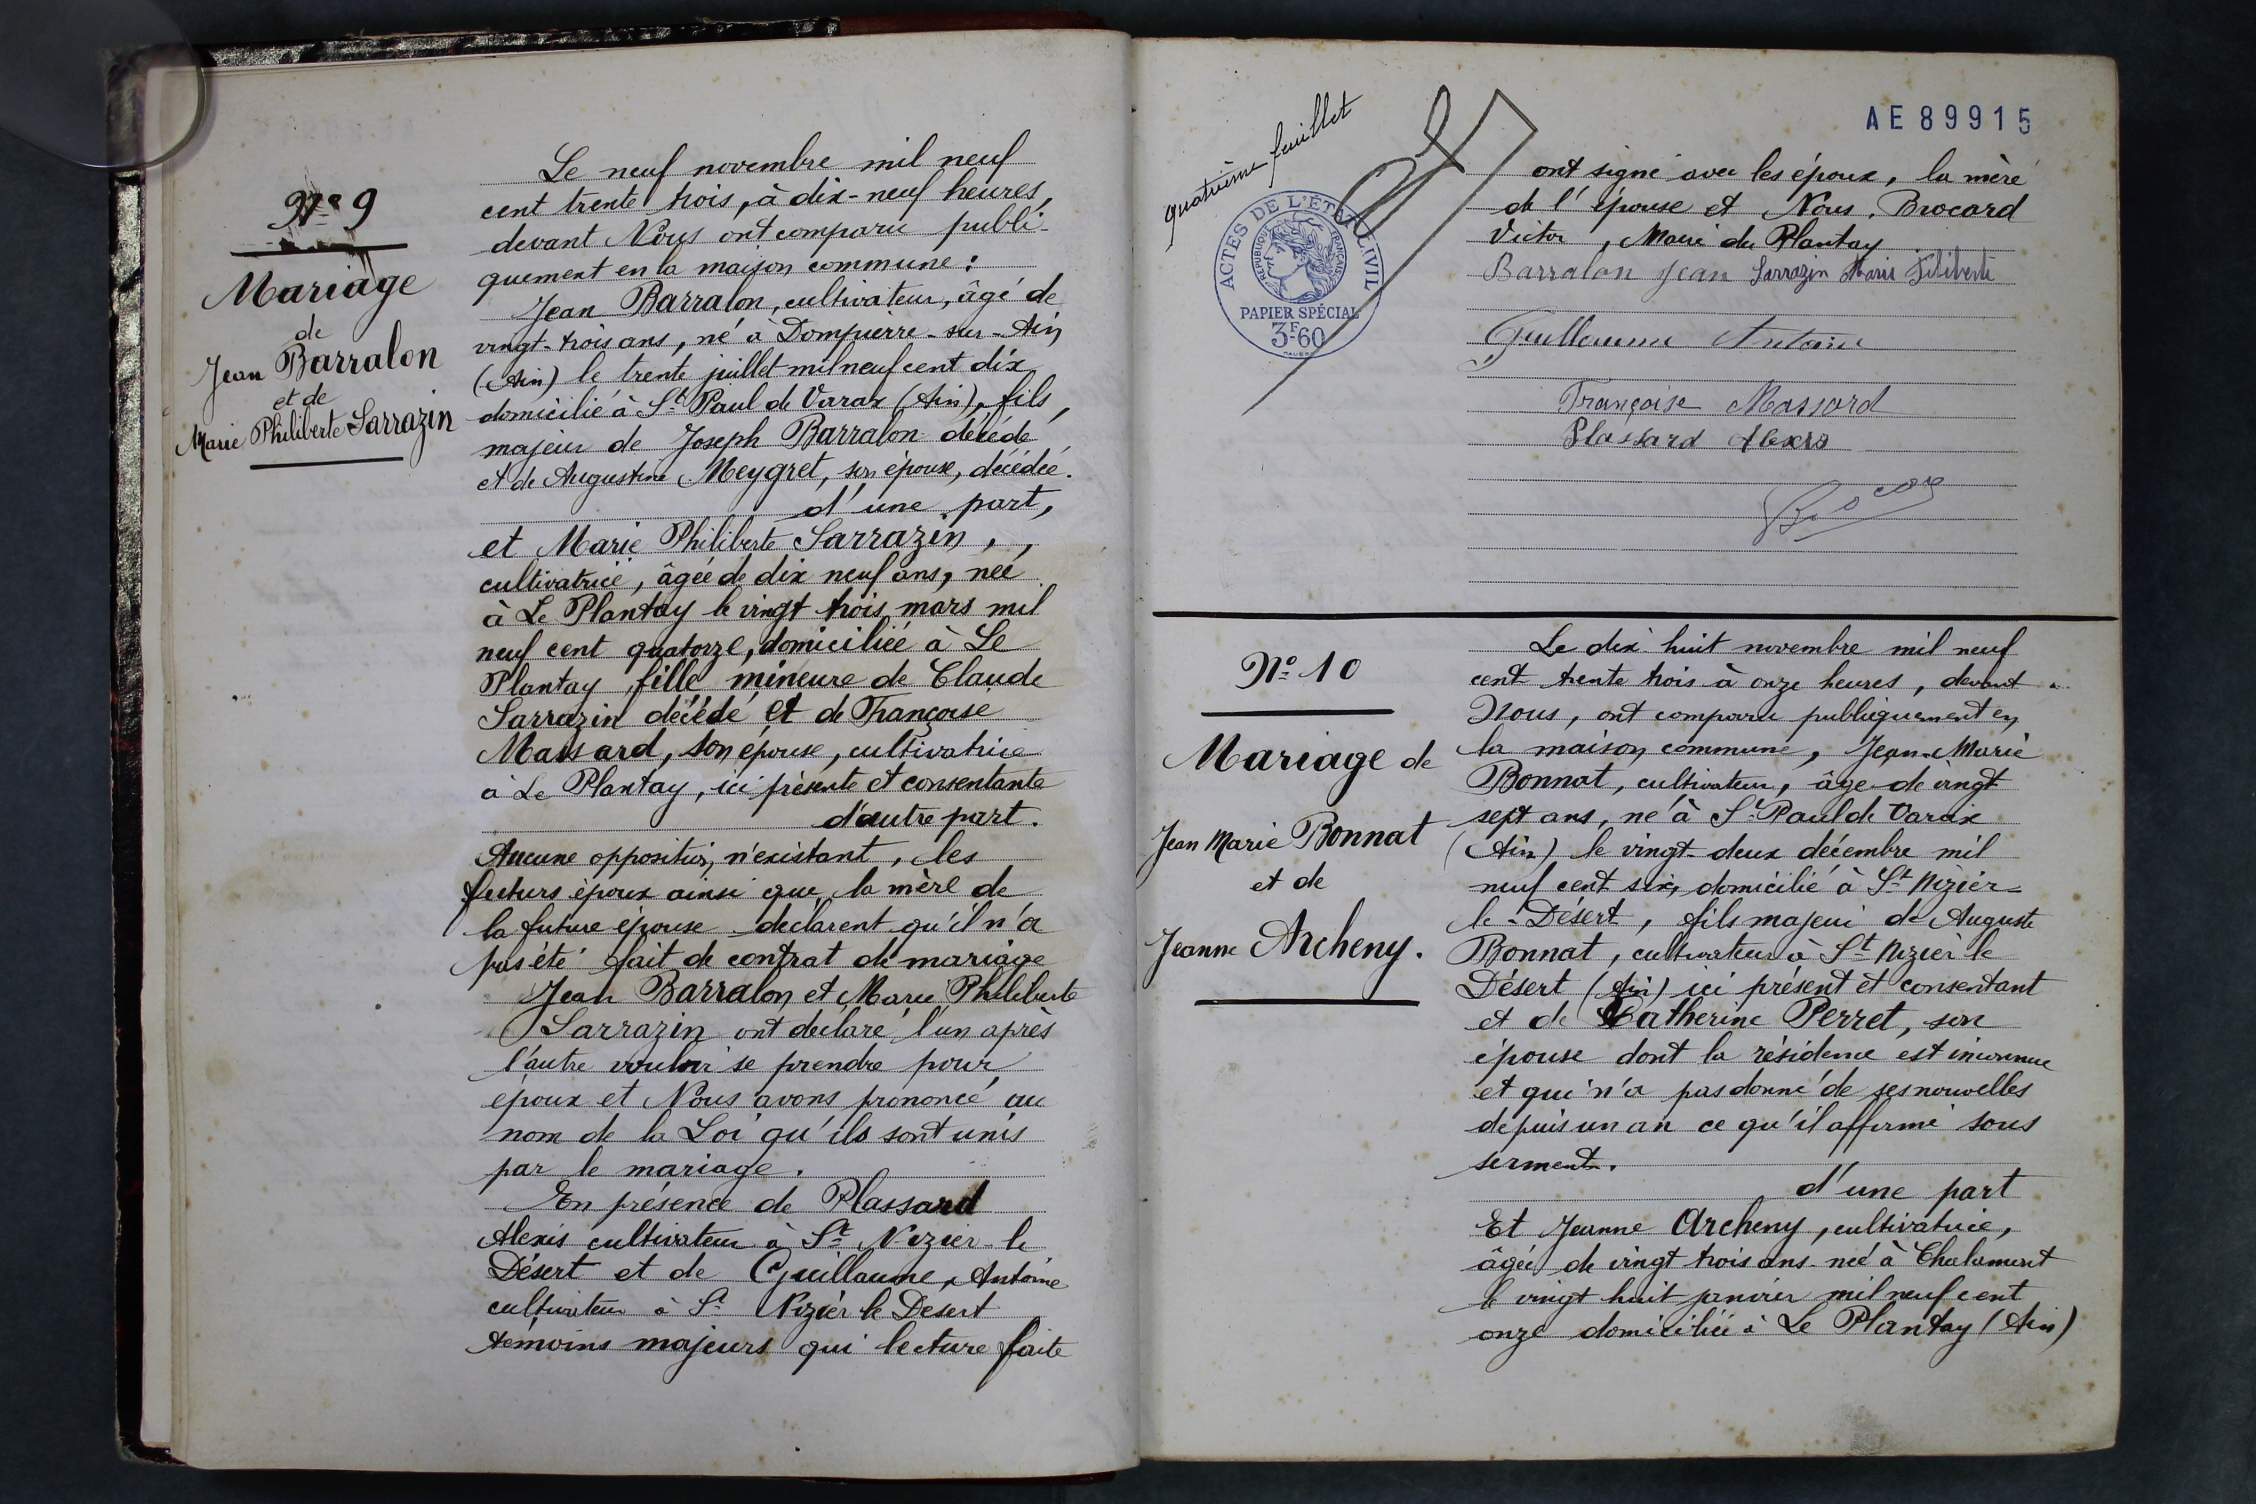 N° 9
Mariage
de
Jean Barralon
et de
Marie Philiberte Sarrazin
Le neuf novembre mil neuf
cent trente trois, à dix-neuf heures,
devant Nous ont comparu publi-
quement en la maison commune :
Jean Barralon, cultivateur, âgé de
vingt-trois ans, né à Dompierre-sur-Ain
(Ain) le trente juillet mil neuf cent dix
domicilié à St Paul de Varax (Ain), fils
majeur de Joseph Barralon décédé
et de Augustine Meygret, son épouse, décédée.
d'une part,
et Marie Philiberte Sarrazin,
cultivatrice, âgée de dix neuf ans, née
à Le Plantay le vingt trois mars mil
neuf cent quatorze, domiciliée à Le
Plantay, fille mineure de Claude
Sarrazin décédé et de Françoise
Massard, son épouse, cultivatrice
à Le Plantay, ici présente et consentante
d'autre part.
Aucune opposition n'existant, les
futurs époux ainsi que la mère de
la future épouse déclarent qu'il n'a
pas été fait de contrat de mariage
Jean Barralon et Marie Philiberte
Sarrazin ont déclaré l'un après
l'autre vouloir se prendre pour
époux et Nous avons prononcé au
nom de la Loi qu'ils sont unis
par le mariage.
En présence de Plassard
Alexis cultivateur à St Nizier-le
Désert et de Guillaume, Antoine
cultivateur à St Nizier le Desert
témoins majeurs qui lecture faite
quatrième feuillet
ACTES DE L'ÉTAT CIVIL
RÉPUBLIQUE FRANÇAISE
PAPIER SPÉCIAL
3F60
AE 89915
ont signé avec les époux, la mère
de l'épouse et Nous, Brocard
Victor, Maire du Plantay
Barralon Jean Sarrazin Marie Filiberte
Guillaume Antoine
Françoise Massard
Plassard Alexis
Brocard
N° 10
Mariage de
Jean Marie Bonnat
et de
Jeanne Archeny.
Le dix huit novembre mil neuf
cent trente trois à onze heures, devant
Nous, ont comparu publiquement en
la maison commune, Jean-Marie
Bonnat, cultivateur, âge de vingt
sept ans, né à St Paul de Varax
(Ain) le vingt-deux décembre mil
neuf cent six, domicilié à St Nizier-
le-Désert, fils majeur de Auguste
Bonnat, cultivateur à St Nizier le
Désert (Ain) ici présent et consentant
et de Catherine Perret, son
épouse dont la résidence est inconnue
et qui n'a pas donné de ses nouvelles
depuis un an ce qu'il affirme sous
serment.
d'une part
Et Jeanne Archeny, cultivatrice,
âgée de vingt trois ans née à Chalamont
le vingt huit janvier mil neuf cent
onze domiciliée à Le Plantay (Ain)